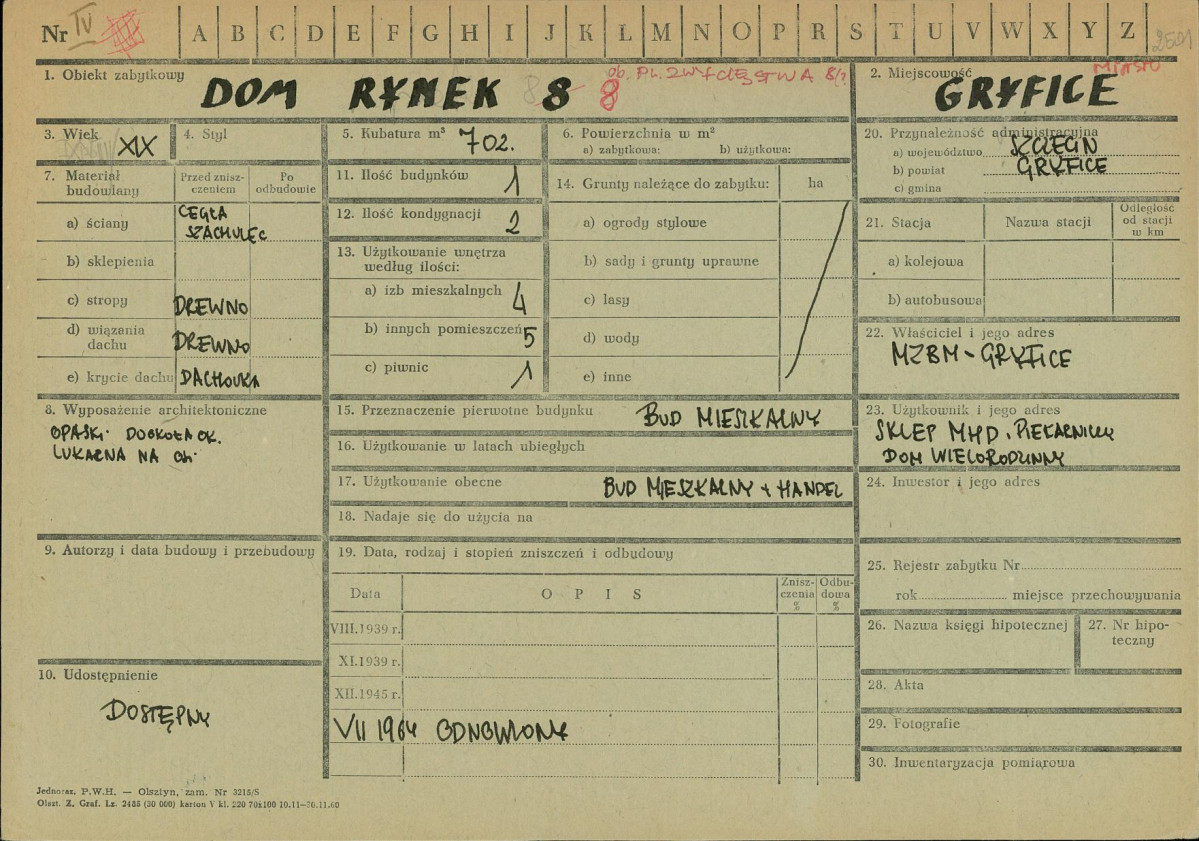 Nr IV A B C D E F G H I J K L M N O P R S T U V W X Y Z
1. Obiekt zabytkowy
DOM RYNEK 8 8
ob. PL. ZWYCIĘSTWA 8
2. Miejscowość
MIASTO
GRYFICE
3. Wiek
XIX
4. Styl
5. Kubatura m³
702.
6. Powierzchnia w m²
a) zabytkowa: b) użytkowa:
7. Materiał budowlany
Przed znisz-
czeniem
Po
odbudowie
a) ściany
CEGŁA
SZACHULEC
b) sklepienia
c) stropy DREWNO
d) wiązania
dachu DREWNO
e) krycie dachu DACHÓWKA
8. Wyposażenie architektoniczne
OPASKI DOOKOŁA OK.
LUKARNA NA
9. Autorzy i data budowy i przebudowy
10. Udostępnienie
DOSTĘPNY
11. Ilość budynków 1
12. Ilość kondygnacji 2
13. Użytkowanie wnętrza
według ilości:
a) izb mieszkalnych 4
b) innych pomieszczeń 5
c) piwnic 1
14. Grunty należące do zabytku: ha
a) ogrody stylowe
b) sady i grunty uprawne
c) lasy
d) wody
e) inne
15. Przeznaczenie pierwotne budynku BUD MIESZKALNY
16. Użytkowanie w latach ubiegłych
17. Użytkowanie obecne BUD MIESZKALNY + HANDEL
18. Nadaje się do użycia na
19. Data, rodzaj i stopień zniszczeń i odbudowy
Data
OPIS
Znisz-
czenia
%
Odbu-
dowa
%
VIII.1939 r.
XI.1939 r.
XII.1945 r.
VII 1964 ODNOWIONY
20. Przynależność administracyjna
a) województwo SZCZECIN
b) powiat GRYFICE
c) gmina
21. Stacja
Nazwa stacji
Odległość
od stacji
w km
a) kolejowa
b) autobusowa
22. Właściciel i jego adres
MZBM - GRYFICE
23. Użytkownik i jego adres
SKLEP MHD. PIEKARNICZY
DOM WIELORODZINNY
24. Inwestor i jego adres
25. Rejestr zabytku Nr
rok miejsce przechowywania
26. Nazwa księgi hipotecznej
27. Nr hipo-
teczny
28. Akta
29. Fotografie
30. Inwentaryzacja pomiarowa
Jednoraz. P.W.H. — Olsztyn, zam. Nr 3215/S
Olszt. Z. Graf. Lz. 2485 (30 000) karton V kl. 220 70x100 10.11—30.11.60